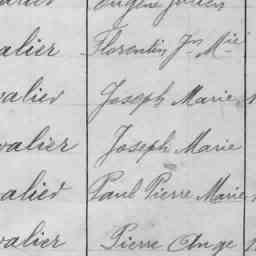 Eugène Julien
valier Florentin Jn Mie
valier Joseph Marie
valier Joseph Marie
valier Paul Pierre Marie
valier Pierre Ange